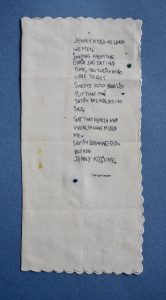 JENNY KISSED ME WHEN
WE MET,
JUMPING FROM THE
CHAIR SHE SAT IN;
TIME, YOU THIEF, WHO
LOVE TO GET
SWEETS INTO YOUR LIST,
PUT THAT IN:
SAY I'M WEARY, SAY I'M
SAD,
SAY THAT HEALTH AND
WEALTH HAVE MISSED
ME,
SAY I'M GROWING OLD,
BUT ADD
JENNY KISSED ME.